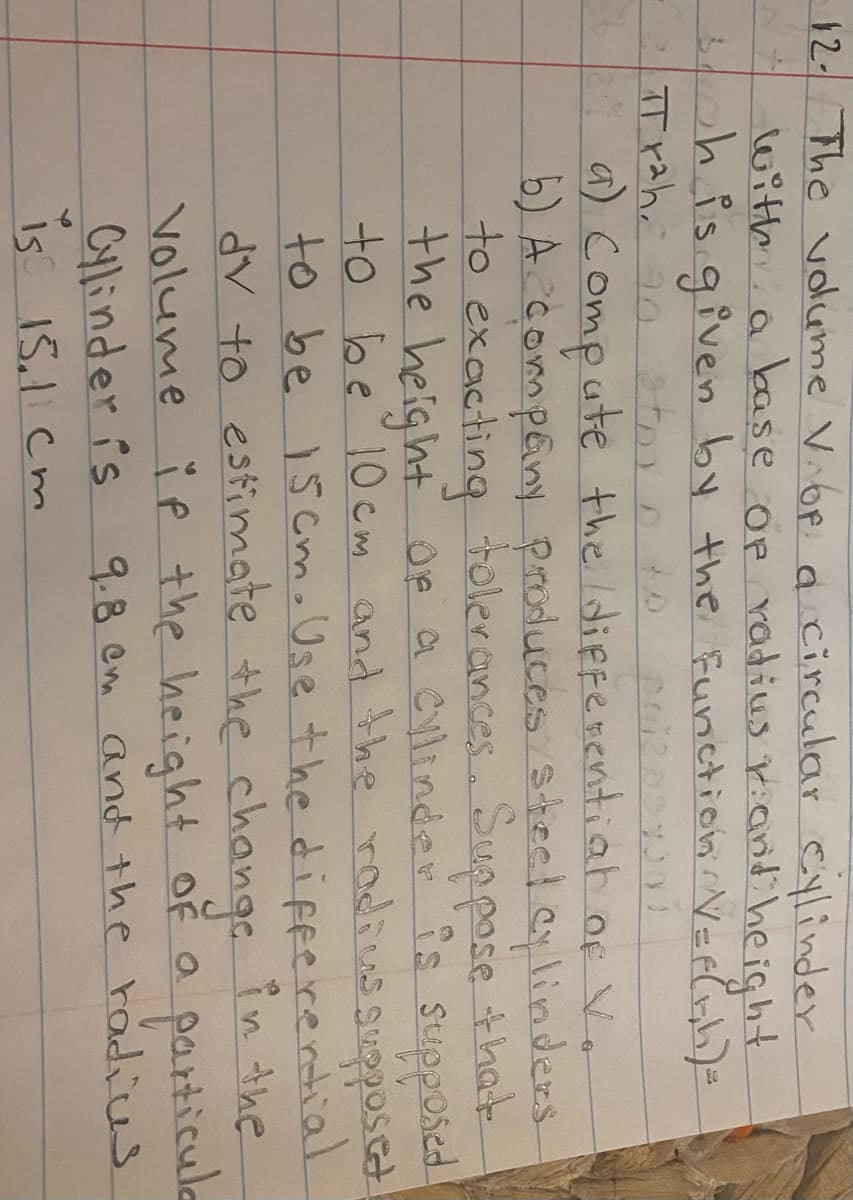 12. The volume V of a circular cylinder
with a base of radius r and height
h is given by the function V=f(r,h)=
πr²h.
a) Compute the differential of V.
b) A company produces steel cylinders
to exacting tolerances. Suppose that
the height of a cylinder is supposed
to be 10cm and the radius supposed
to be 15cm. Use the differential
dV to estimate the change in the
volume if the height of a particula
cylinder is 9.8 cm and the radius
is 15.1 cm